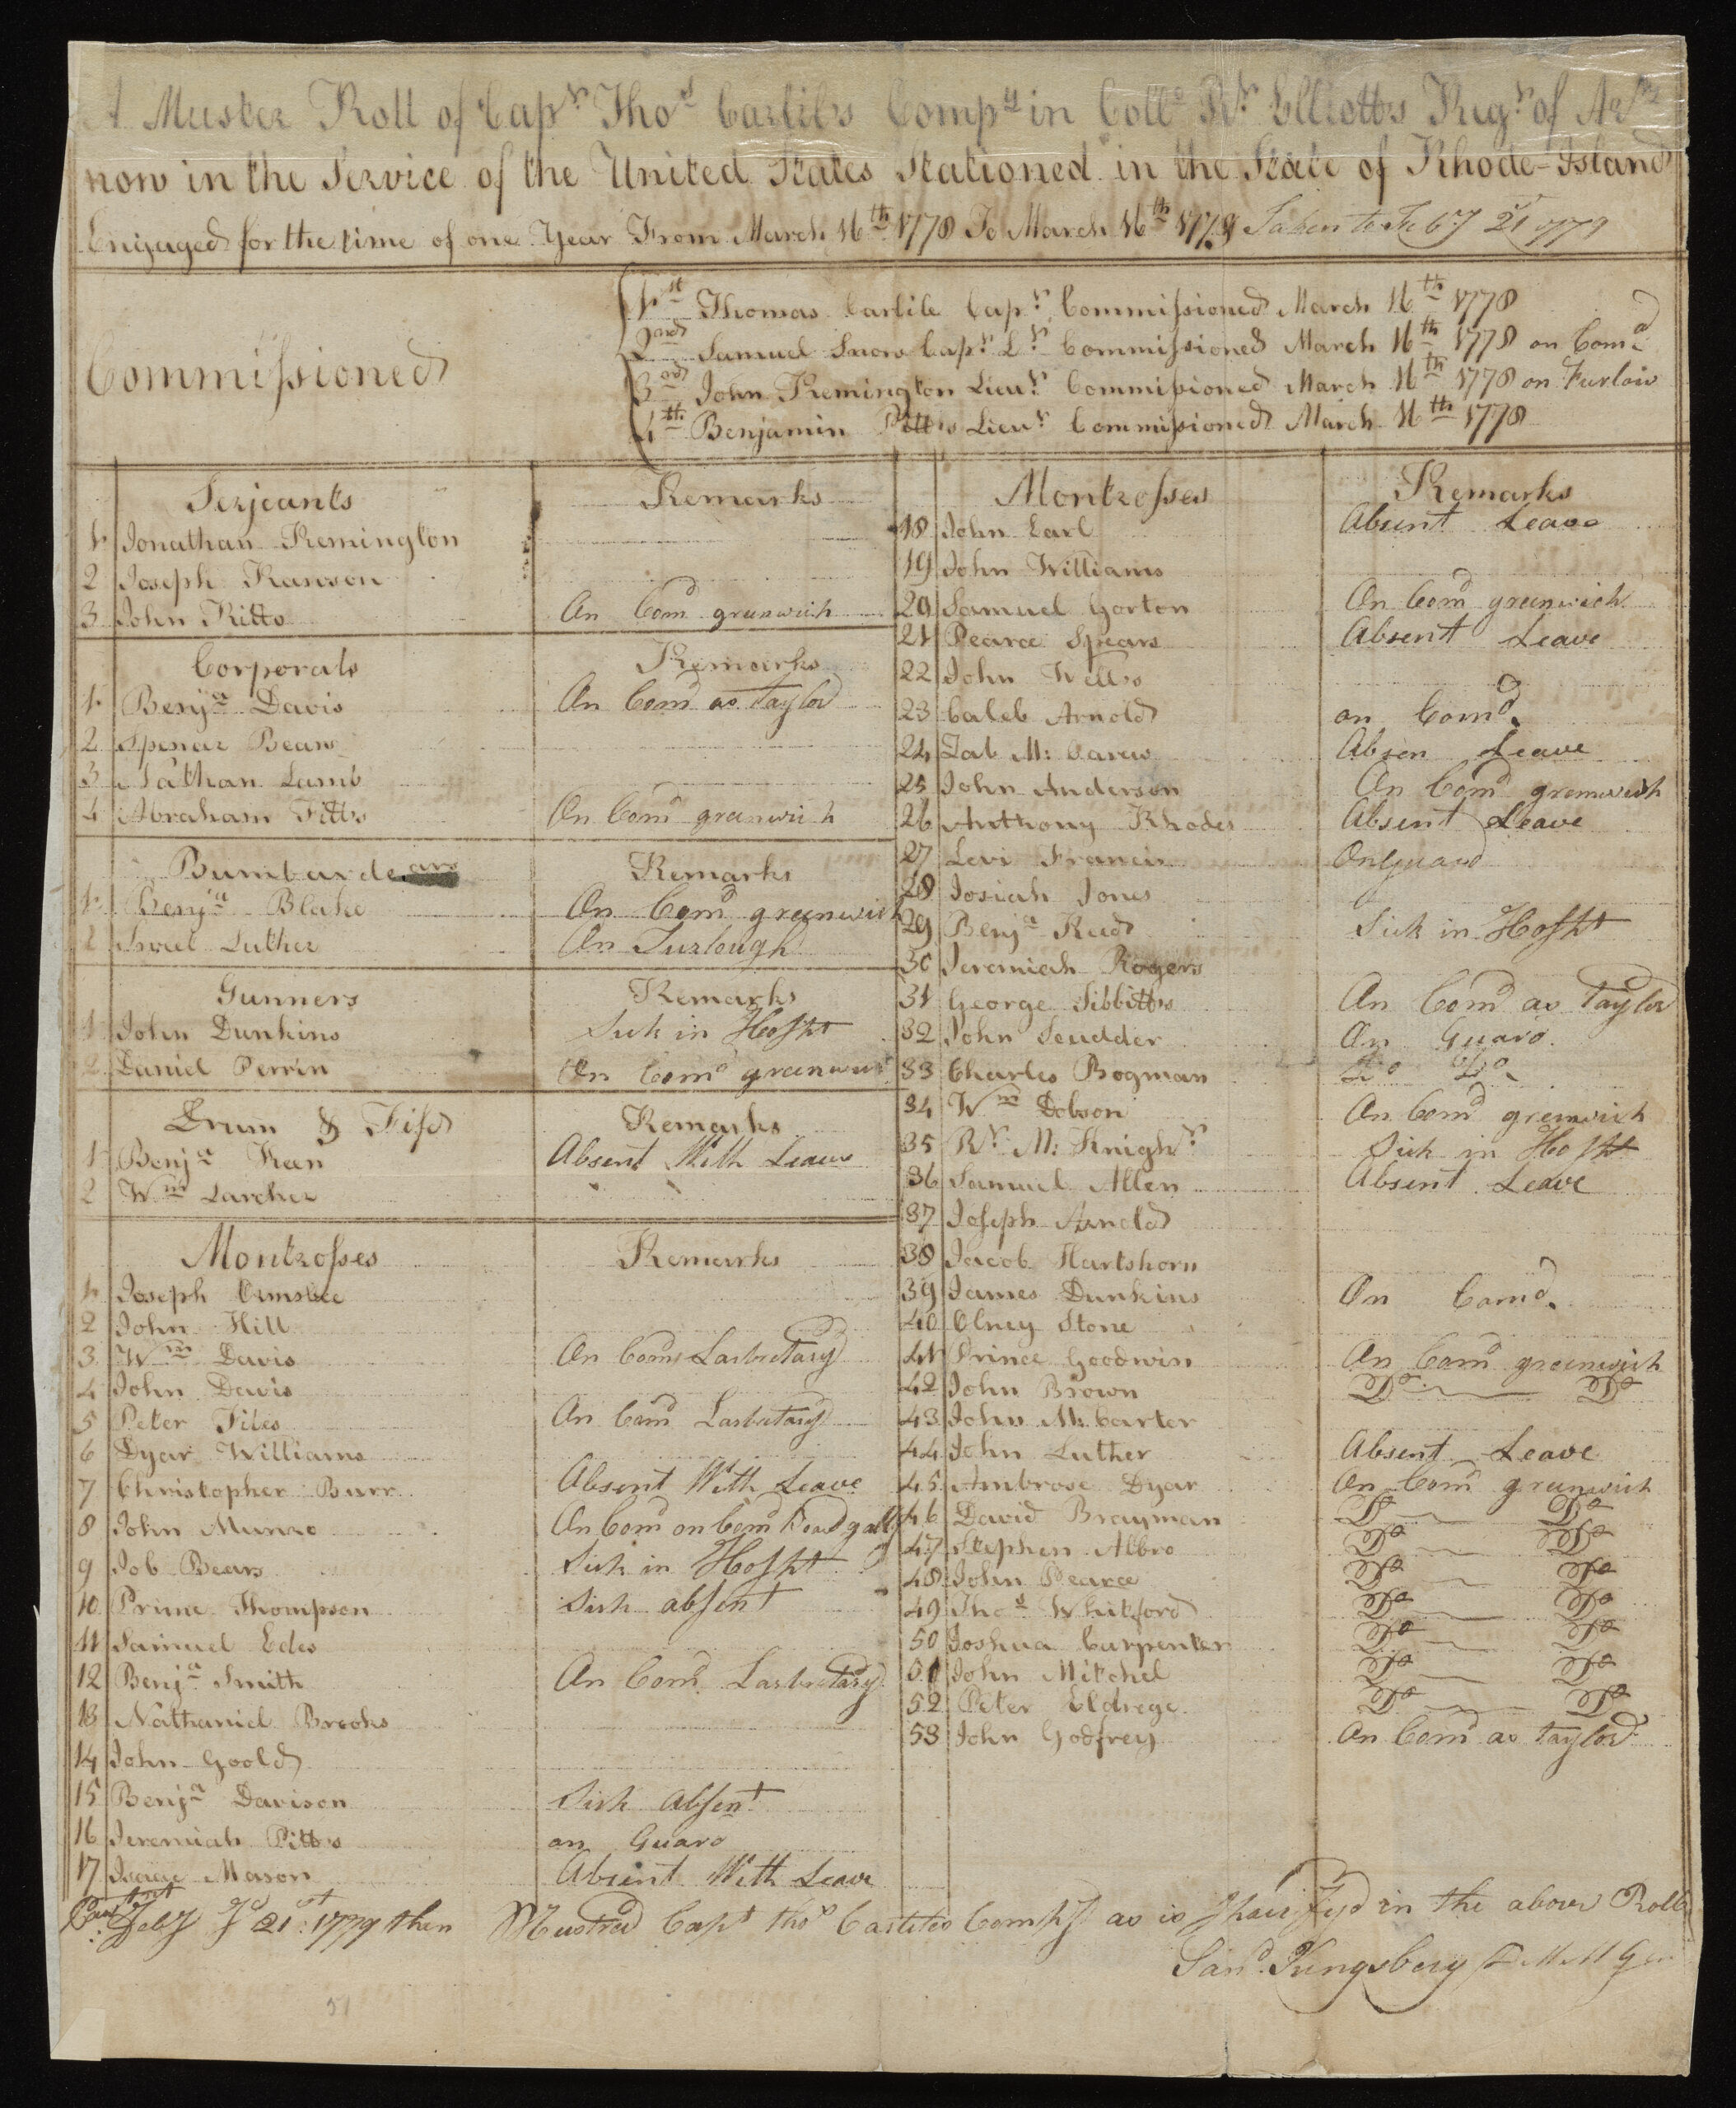 A Muster Roll of Capt Thos Carliles Compy in Collo Rt Elliotts Regt of Ar
now in the Service of the United States Stationed in the State of Rhode-Island
Engaged for the time of one Year From March 16th 1778 To March 16th 1779 Taken to Feby 21st 1779
Commissioned
1st Thomas Carlile Capt Commissioned March 16th 1778
2nd Samuel Snow Capt Lt Commissioned March 16th 1778 on Comd
3rd John Remington Lieut Commissioned March 16th 1778 on Furlow
4th Benjamin Pitts Lieut Commissioned March 16th 1778
Serjeants Remarks
1 Jonathan Remington
2 Joseph Rawson
3 John Pitts On Comd greenwich
Corporals Remarks
1 Benja Davis On Comd as Taylor
2 Spencer Bears
3 Nathan Lamb
4 Abraham Fitts On Comd greenwich
Bumbardears Remarks
1 Benja Blake On Comd greenwich
2 Israel Luther On Furlough
Gunners Remarks
1 John Dunkins Sick in Hospt
2 Daniel Perrin On Comd greenwich
Drum & Fife Remarks
1 Benja Kean Absent With Leave
2 Wm Larcher
Montrosses Remarks
1 Joseph Ormsbee
2 John Hill
3 Wm Davis On Comd Laboratary
4 John Davis
5 Peter Files On Comd Laboratary
6 Dyar Williams
7 Christopher Burr Absent With Leave
8 John Munro On Comd on Comd gally
9 Job Bears Sick in Hospt
10 Prime Thompson Sick absent
11 Samuel Edes
12 Benja Smith On Comd Laboratary
13 Nathaniel Brooks
14 John Goold
15 Benja Davison Sick Absent
16 Jeremiah Pitts on Guard
17 Isaac Mason Absent With Leave
Montrosses Remarks
18 John Earl Absent Leave
19 John Williams
20 Samuel Gorton On Comd greenwich
21 Pearce Spears Absent Leave
22 John Wells
23 Caleb Arnold on Comd
24 Zab M: Carew Absen Leave
25 John Anderson On Comd greenwich
26 Anthony Rhodes Absent Leave
27 Levi Francis On Guard
28 Josiah Jones
29 Benja Read Sick in Hospt
30 Jeremiah Rogers
31 George Tibbitts On Comd as Taylor
32 John Scudder On Guard
33 Charles Bogman Do Do
34 Wm Dobson On Comd greenwich
35 Rt M: Knight Sick in Hospt
36 Samuel Allen Absent Leave
37 Joseph Arnold
38 Jacob Hartshorn
39 James Dunkins On Comd
40 Olney Stone
41 Prince Goodwin On Comd greenwich
42 John Brown Do Do
43 John Mc Carter
44 John Luther Absent Leave
45 Ambrose Dyar On Comd greenwich
46 David Brayman Do Do
47 Stephen Albro Do Do
48 John Pearce Do Do
49 Thos Whitford Do Do
50 Joshua Carpenter Do Do
51 John Mitchel Do Do
52 Peter Eldrege Do Do
53 John Godfrey On Comd as Taylor
Feby ye 21st 1779 then Mustred Capt Thos Carliles Compy as is Speicifyd in the above Roll
Sand. Kingsbery D M M Gen
51